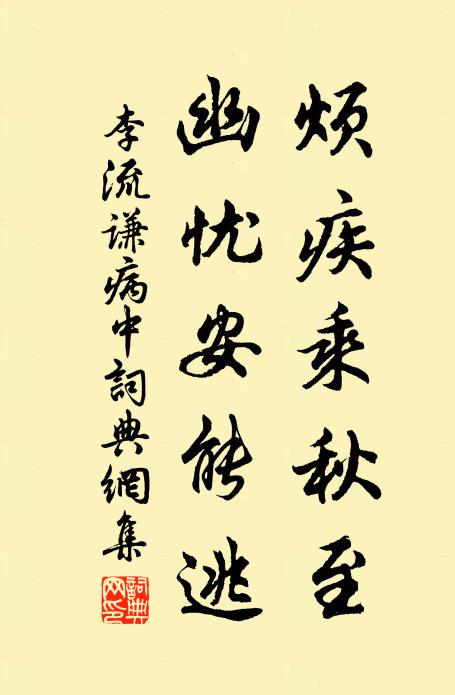 烦疾乘秋至
幽忧安能逃
李流谦病中詞典網集
詞典網印